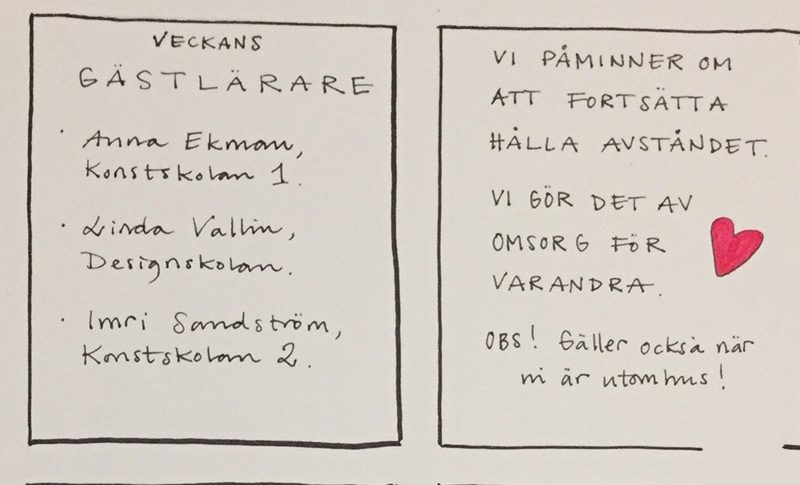 VECKANS
GÄSTLÄRARE
· Anna Ekman,
Konstskolan 1.
· Linda Vallin,
Designskolan.
· Imri Sandström,
Konstskolan 2.
VI PÅMINNER OM
ATT FORTSÄTTA
HÅLLA AVSTÅNDET.
VI GÖR DET AV
OMSORG FÖR
VARANDRA.
OBS! Gäller också när
ni är utomhus!